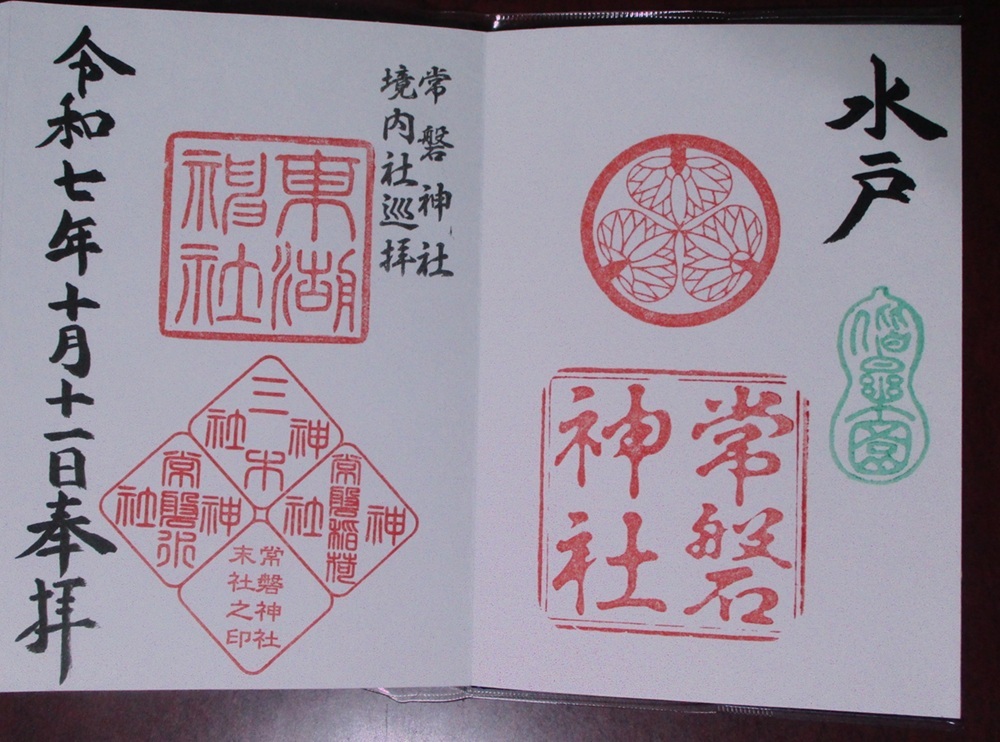 水戸
偕楽園
常磐
神社
常磐神社
境内社巡拝
東湖
神社
三木
神社
常磐稲荷
神社
常磐
神社
常磐神社
末社之印
令和七年十月十一日奉拝